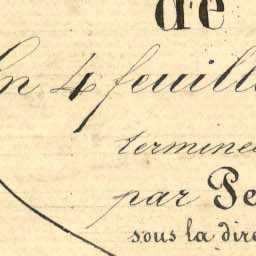 de
En 4 feuill
terminée
par Pe
sous la dire